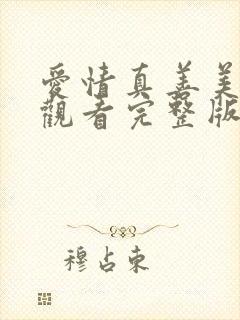 愛情真善美
觀看完整版
穆占東